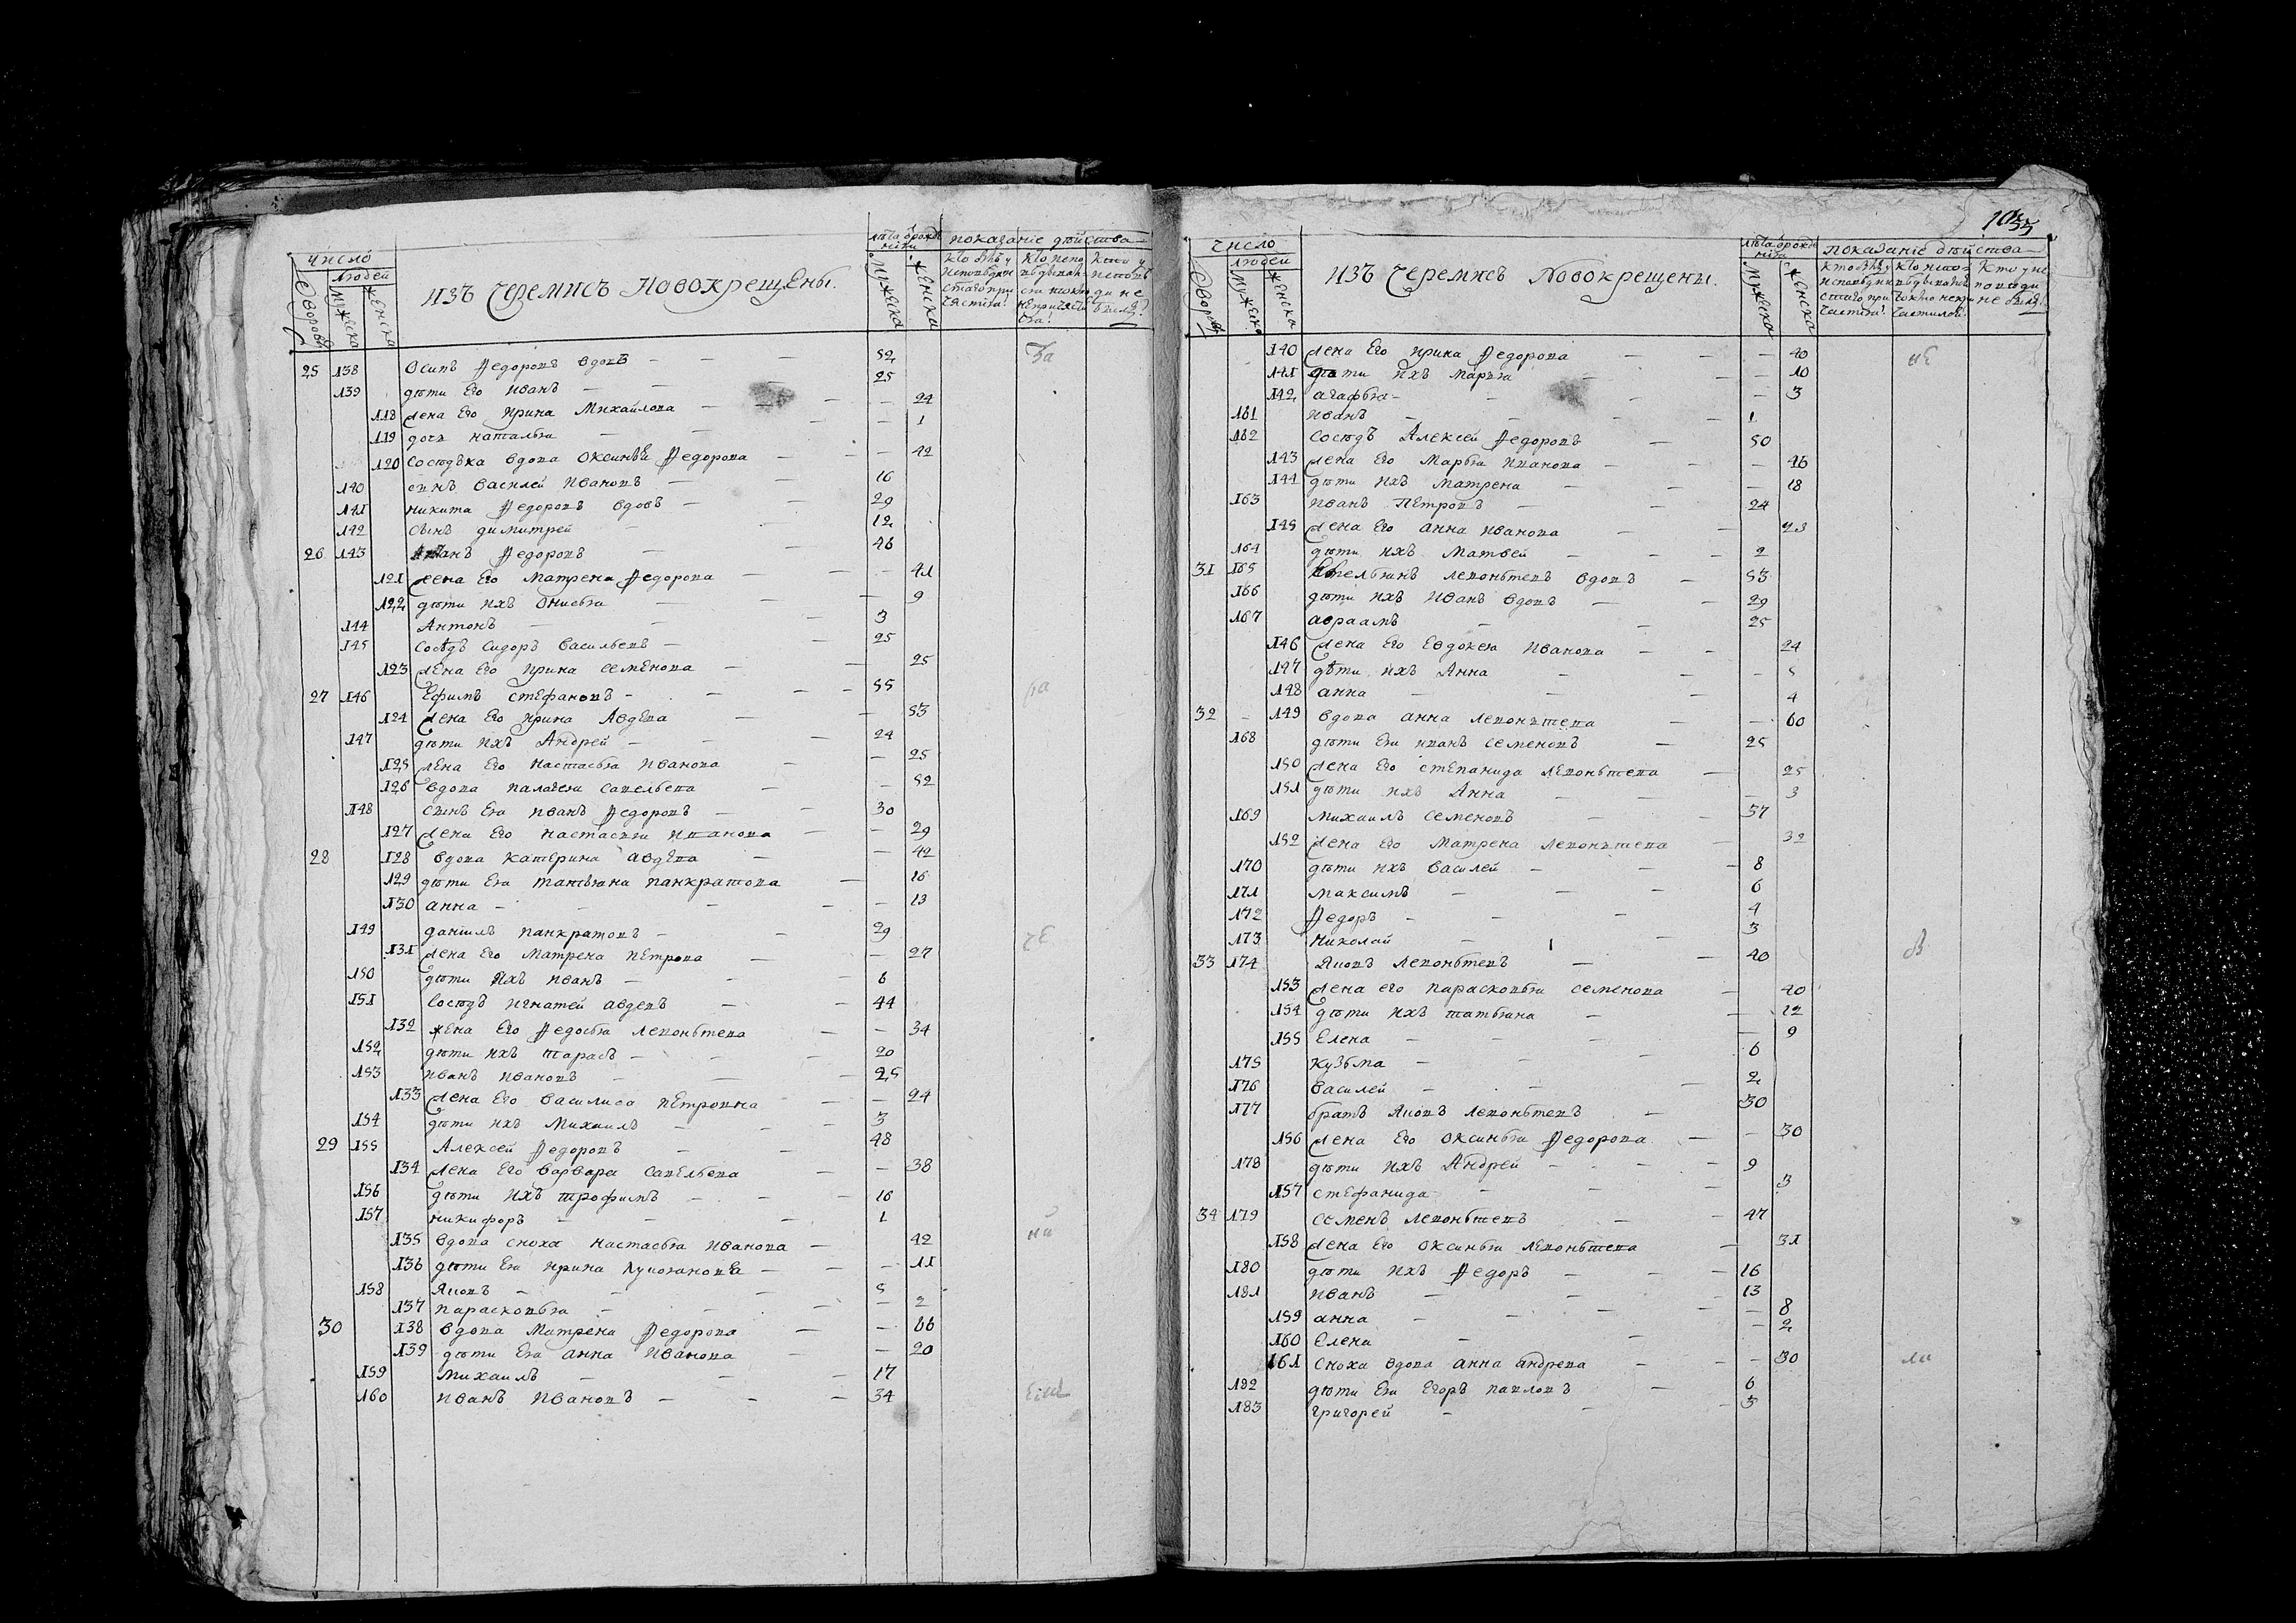 число
людей
дворовъ
мужеска
женска
изъ Черемисъ Новокрещены.
лѣта ѿрожденiя
мужеска
женска
показанiе дѣйства
25 138 Осипъ Ѳедоровъ вдовъ — 52
139 дѣти Его Иванъ — 25
118 жена Его Ирина Михайлова — 24
119 дочь наталья — 1
120 сосѣдка вдова Оксинья Ѳедорова — 42
140 сынъ василей Ивановъ — 16
141 никита Ѳедоровъ вдовъ — 29
142 сынъ димитрей — 12
26 143 Иванъ Ѳедоровъ — 46
121 жена Его Матрена Ѳедорова — 41
122 дѣти ихъ Онисья — 9
144 Антонъ — 3
145 Сосѣдъ Сидоръ васильевъ — 25
123 жена Его Ирина семенова — 25
27 146 Ефимъ стефановъ — 55
124 жена Его Ирина Авдѣева — 53
147 дѣти ихъ Андрей — 24
125 жена Его настасья Иванова — 25
126 вдова палагея савельева — 52
148 сынъ Ея иванъ Ѳедоровъ — 30
127 жена Его настасья Иванова — 29
28 128 вдова катерина авдева — 42
129 дѣти Ея татьяна панкратова — 16
130 анна — 13
149 данiилъ панкратовъ — 29
131 жена Его Матрена петрова — 27
150 дѣти ихъ иванъ — 6
151 сосѣдъ игнатей авдевъ — 44
132 жена Его Ѳедосья левонтьева — 34
152 дѣти ихъ тарасъ — 20
153 иванъ ивановъ — 25
133 жена Его василиса петровна — 24
154 дѣти ихъ Михаилъ — 3
29 155 Алексей Ѳедоровъ — 48
134 жена Его варвара савельева — 38
156 дѣти ихъ трофимъ — 16
157 никифоръ — 1
135 вдова сноха настасья иванова — 42
136 дѣти Ея ирина — 11
158 Яковъ — 5
137 парасковья — 2
30 138 вдова Матрена Ѳедорова — 66
139 дѣти Ея анна Иванова — 20
159 Михаилъ — 17
160 иванъ Ивановъ — 34
1055
число
людей
дворовъ
мужеска
женска
изъ Черемисъ Новокрещены.
лѣта ѿрожденiя
мужеска
женска
показанiе дѣйства
140 жена Его ирина Ѳедорова — 40
141 дѣти ихъ Марья — 10
142 агафья — 3
161 иванъ — 1
162 сосѣдъ Алексей Ѳедоровъ — 50
143 жена Его Марья Иванова — 46
144 дѣти ихъ Матрена — 18
163 иванъ Петровъ — 24
145 жена Его анна иванова — 23
164 дѣти ихъ Матвей — 2
31 165 левонтьевъ вдовъ — 53
166 дѣти ихъ иванъ вдовъ — 29
167 авраамъ — 25
146 жена Его Евдокея Иванова — 24
147 дѣти ихъ Анна — 5
148 анна — 4
32 149 вдова анна левонтьева — 60
168 дѣти Ея иванъ семеновъ — 25
150 жена Его степанида левонтьева — 25
151 дѣти ихъ Анна — 3
169 Михаилъ семеновъ — 37
152 жена Его Матрена левонтьева — 32
170 дѣти ихъ василей — 8
171 максимъ — 6
172 Ѳедоръ — 4
173 николай — 3
33 174 Яковъ левонтьевъ — 40
153 жена его парасковья семенова — 40
154 дѣти ихъ татьяна — 12
155 Елена — 9
175 кузьма — 6
176 василей — 2
177 братъ Яковъ левонтьевъ — 30
156 жена Его оксинья Ѳедорова — 30
178 дѣти ихъ Андрей — 9
157 стефанида — 3
34 179 семенъ левонтьевъ — 47
158 жена Его оксинья левонтьева — 31
180 дѣти ихъ Ѳедоръ — 16
181 иванъ — 13
159 анна — 8
160 Елена — 2
161 сноха вдова анна андрева — 30
182 дѣти Ея Егоръ павловъ — 6
183 григорей — 3